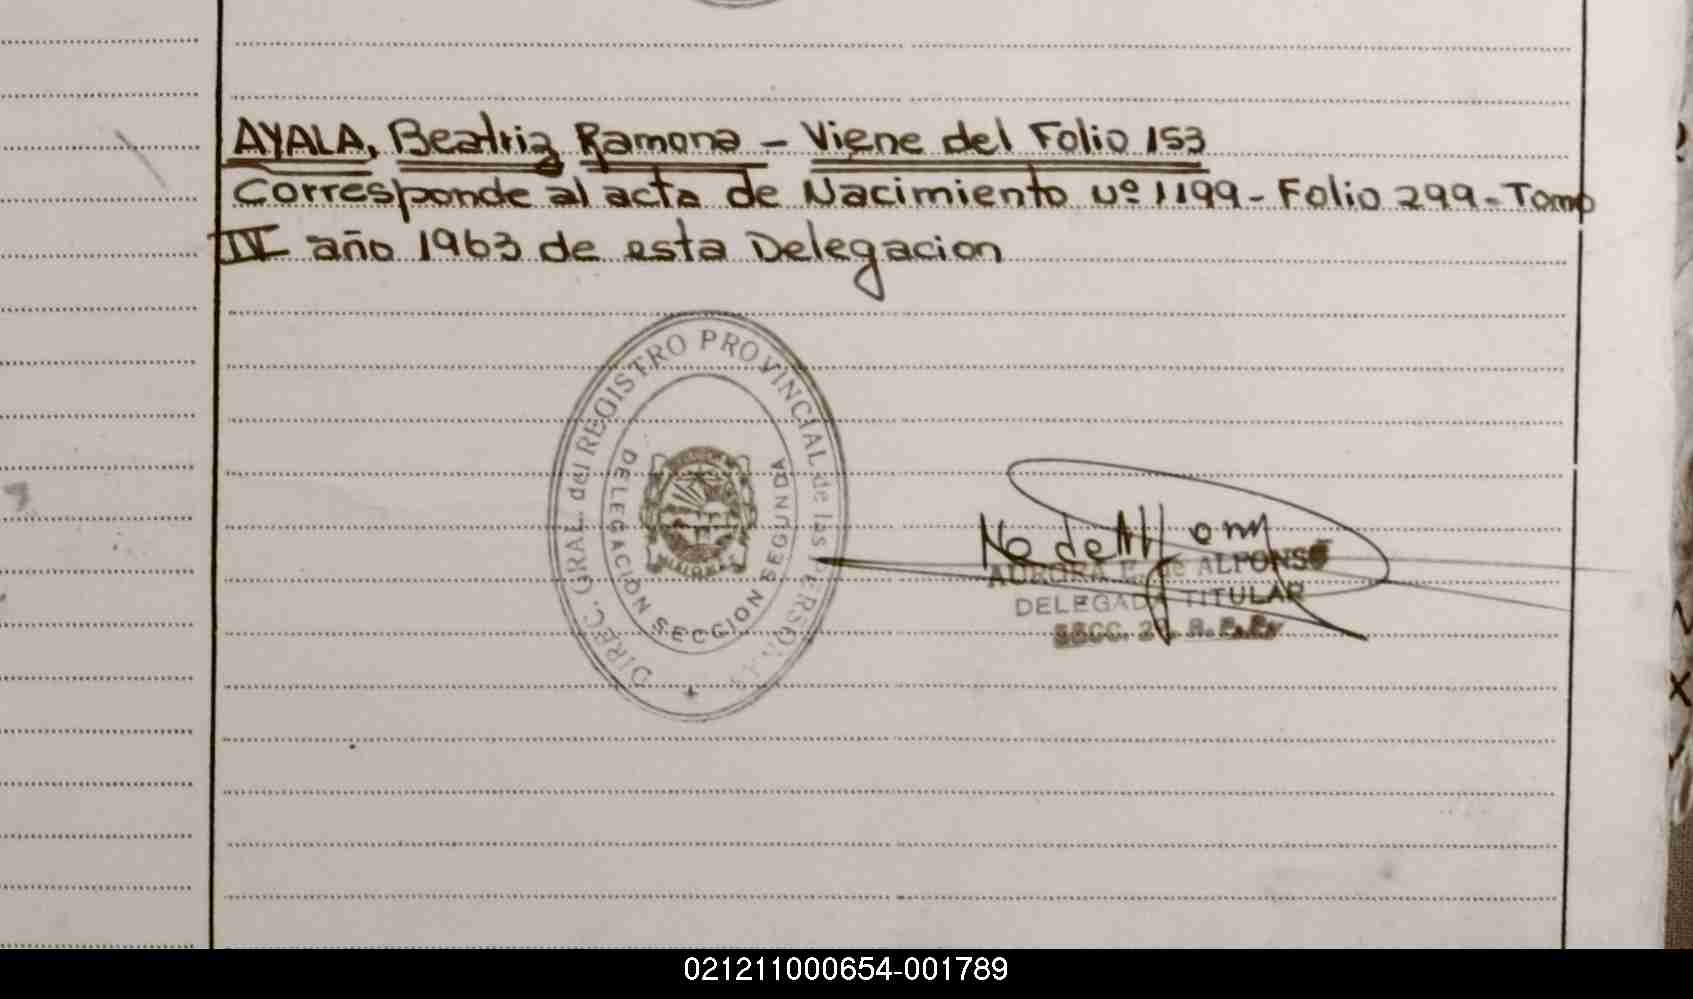 AYALA, Beatriz Ramona - Viene del Folio 153
Corresponde al acta de Nacimiento Nº 1199 - Folio 299 - Tomo
IV año 1963 de esta Delegacion
DIREC. GRAL. del REGISTRO PROVINCIAL de las PERSONAS
DELEGACION SECCION SEGUNDA
AURORA E. de ALFONSO
DELEGADA TITULAR
SECC. 2ª.
021211000654-001789